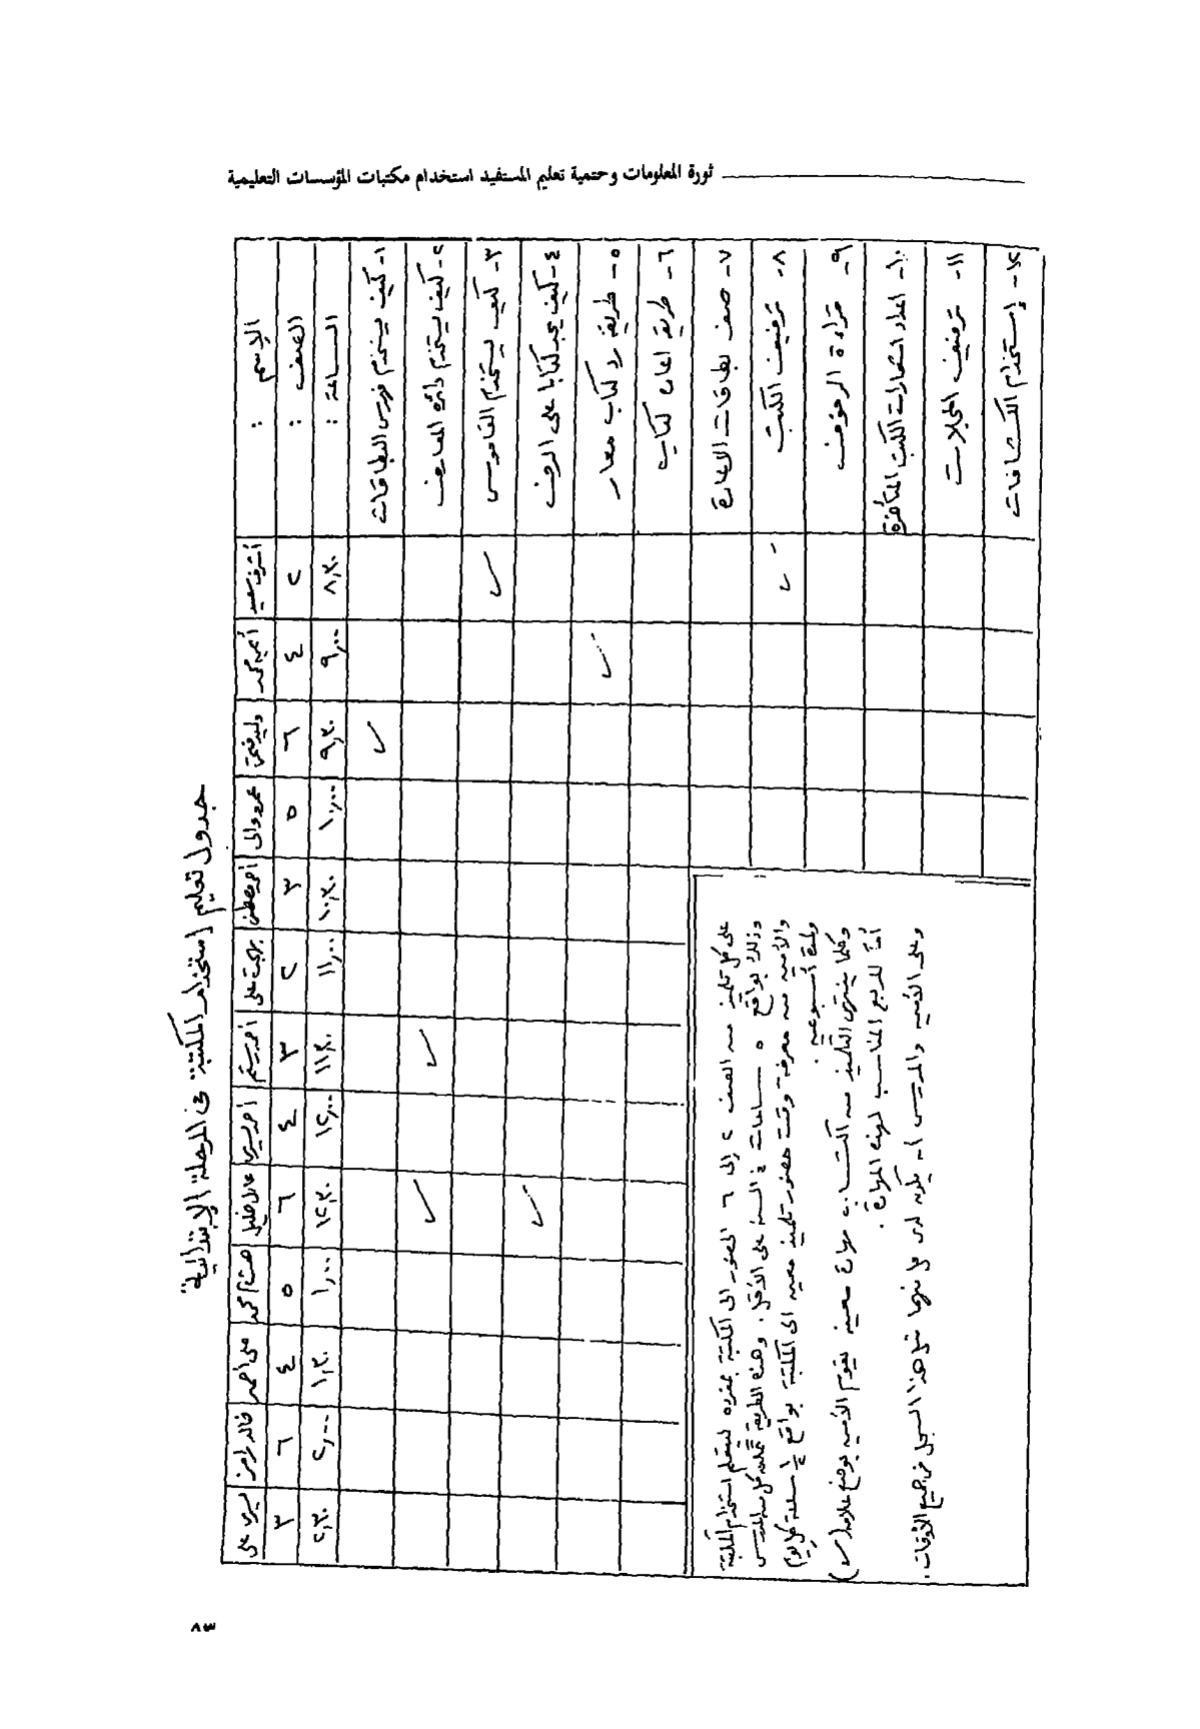 ثورة المعلومات وحتمية تعليم المستفيد استخدام مكتبات المؤسسات التعليمية
جدول تعليم استخدام المكتبة فى المرحلة الإبتدائية
الإسم : أشرف سعيد | | وليد فتحى | عمرو والى | أحمد مصطفى | بهجت على | أحمد رستم | أحمد يسرى | عادل خليل | هشام محمد | منى أحمد | خالد رامز | يسرى على
الصف : ٢ ٤ ٦ ٥ ٣ ٢ ٣ ٤ ٦ ٥ ٤ ٦ ٣
الساعة : ٨,٣٠ ٩,٠٠ ٩,٣٠ ١٠,٠٠ ١٠,٣٠ ١١,٠٠ ١١,٣٠ ١٢,٠٠ ١٢,٣٠ ١,٠٠ ١,٣٠ ٢,٠٠ ٢,٣٠
١- كيف يستخدم فهرس البطاقات ✓
٢- كيف يستخدم دائرة المعارف ✓ ✓
٣- كيف يستخدم القاموس ✓
٤- كيف يجد كتابا على الرف ✓
٥- طريقة رد كتاب معار ✓
٦- طريقة اعارة كتاب
٧- صف بطاقات الاعارة
٨- ترفيف الكتب ✓
٩- قراءة الرفوف
١٠- اعداد اشعارات الكتب المتأخرة
١١- ترفيف المجلات
١٢- إستخدام الكشافات
على كل تلميذ من الصف ٢ إلى ٦ الحضور الى المكتبة بمفرده ليتعلم استخدام المكتبة
وذلك بواقع ٥ ساعات فى السنة على الأقل. وهذه الطريقة تمكن كل من المدرس
والأمين من معرفة وقت حضور تلميذ معين الى المكتبة بواقع ½ ساعة كل يوم
ولمدة أسبوعية.
وكلما ينتهى التلميذ من اكتساب مهارة معينة يقوم الأمين بوضع علامة (✓)
أمام المربع المناسب لهذه المهارة.
وعلى الأمين والمدرس أن يكون لدى كل منهما مثل هذا السجل فى جميع الأوقات.
٨٣